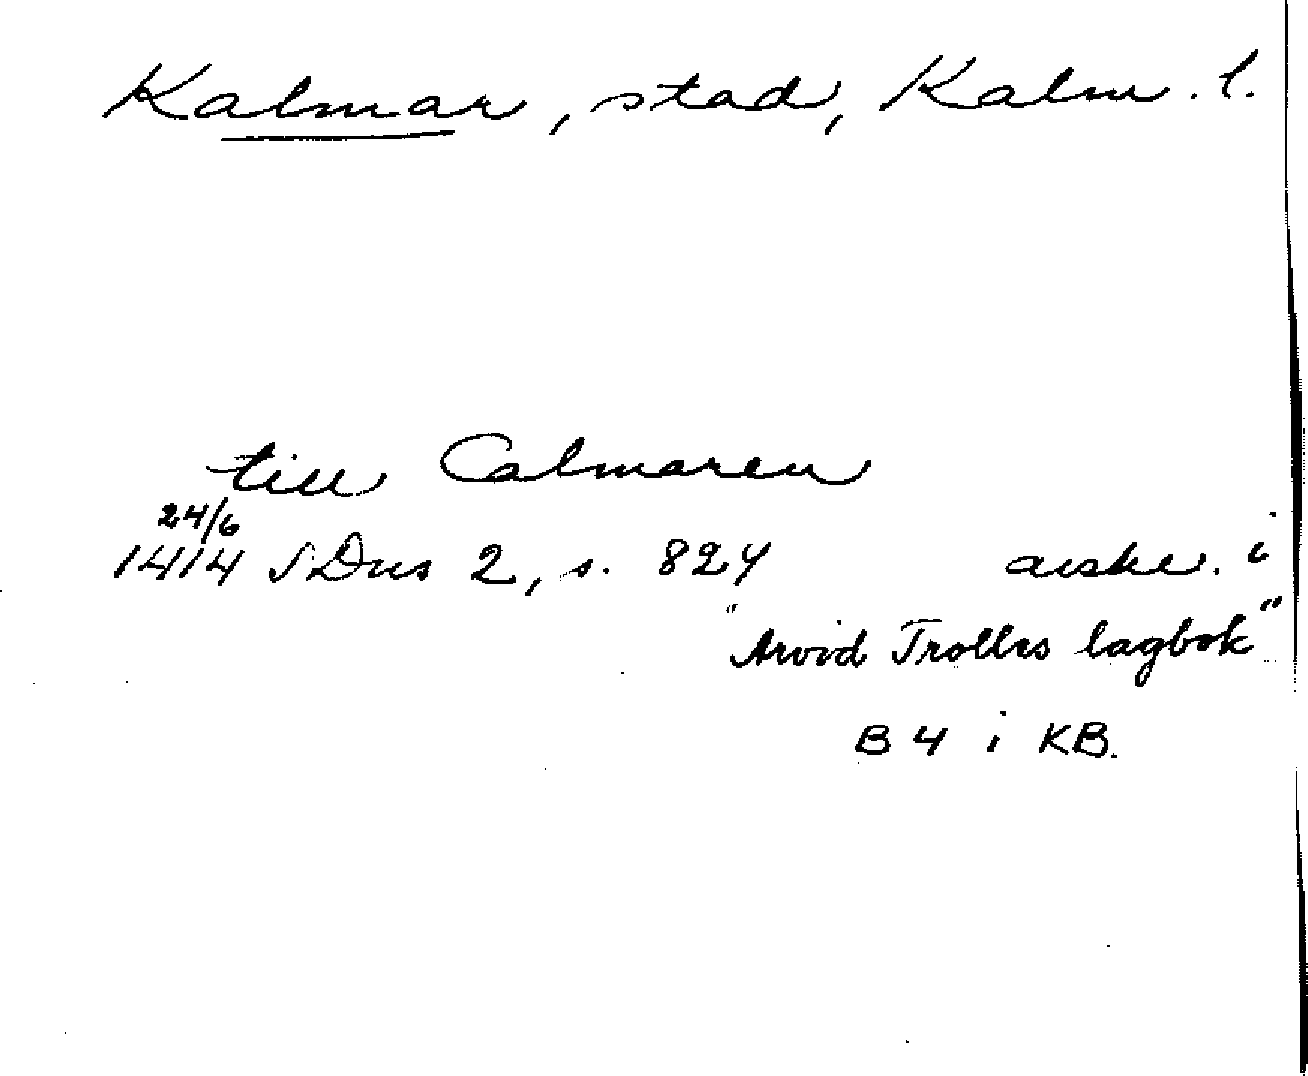 Kalmar, stad, Kalm. l.
till Calmaren
24/6
1414 SDns 2, s. 824 avskr. i
"Arvid Trolles lagbok"
B 4 i KB.